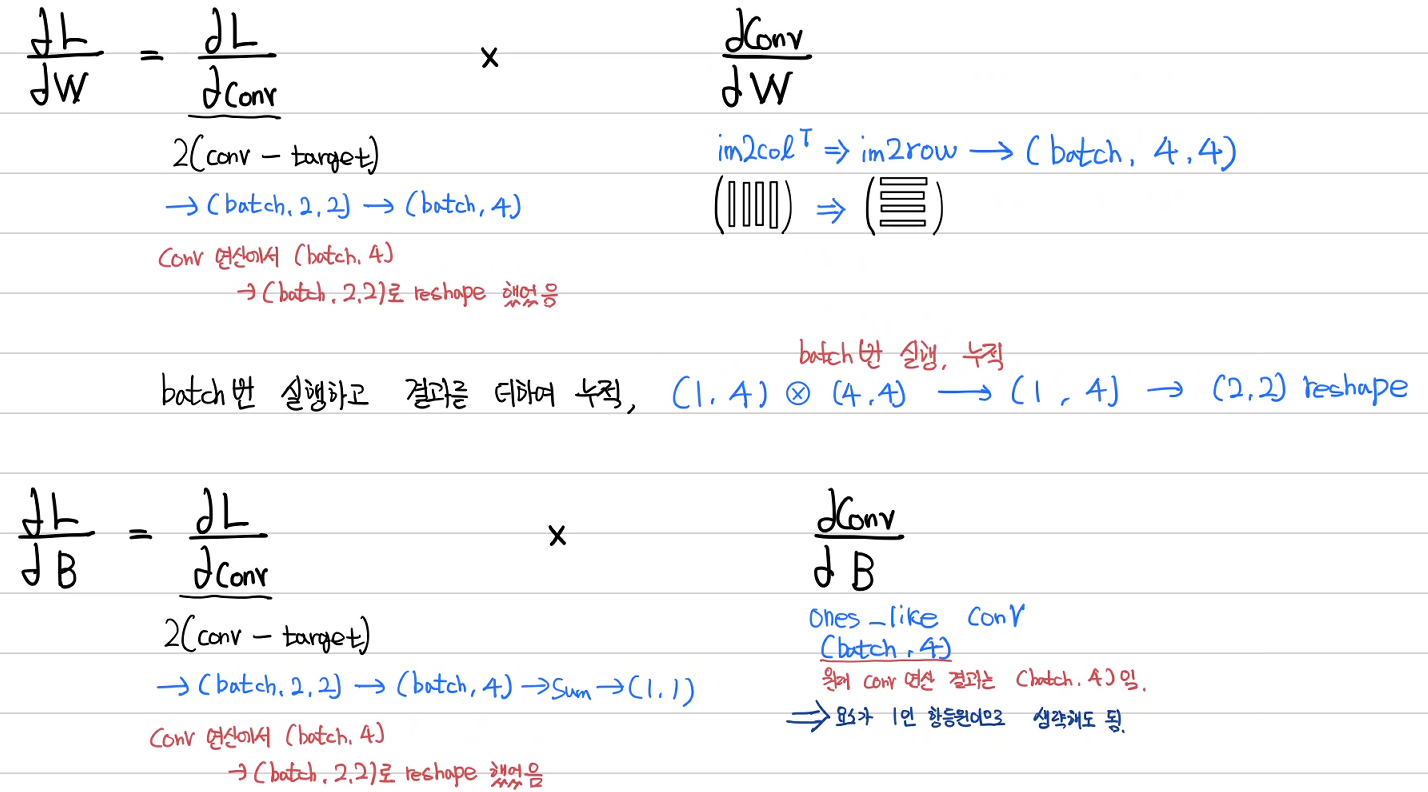 ∂L/∂W = ∂L/∂Conv × ∂Conv/∂W
2(conv – target)
→ (batch, 2, 2) → (batch, 4)
Conv 연산에서 (batch, 4)
→ (batch, 2, 2)로 reshape 했었음
im2colᵀ ⇒ im2row → (batch, 4, 4)
⇒
batch번 실행, 누적
batch번 실행하고 결과를 더하여 누적, (1, 4) ⊗ (4, 4) → (1, 4) → (2, 2) reshape
∂L/∂B = ∂L/∂Conv × ∂Conv/∂B
2(conv – target)
→ (batch, 2, 2) → (batch, 4) → Sum → (1, 1)
Conv 연산에서 (batch, 4)
→ (batch, 2, 2)로 reshape 했었음
ones_like conv
(batch, 4)
원래 conv 연산 결과는 (batch, 4)임.
⇒ 요소가 1인 항등원이므로 생략해도 됨.